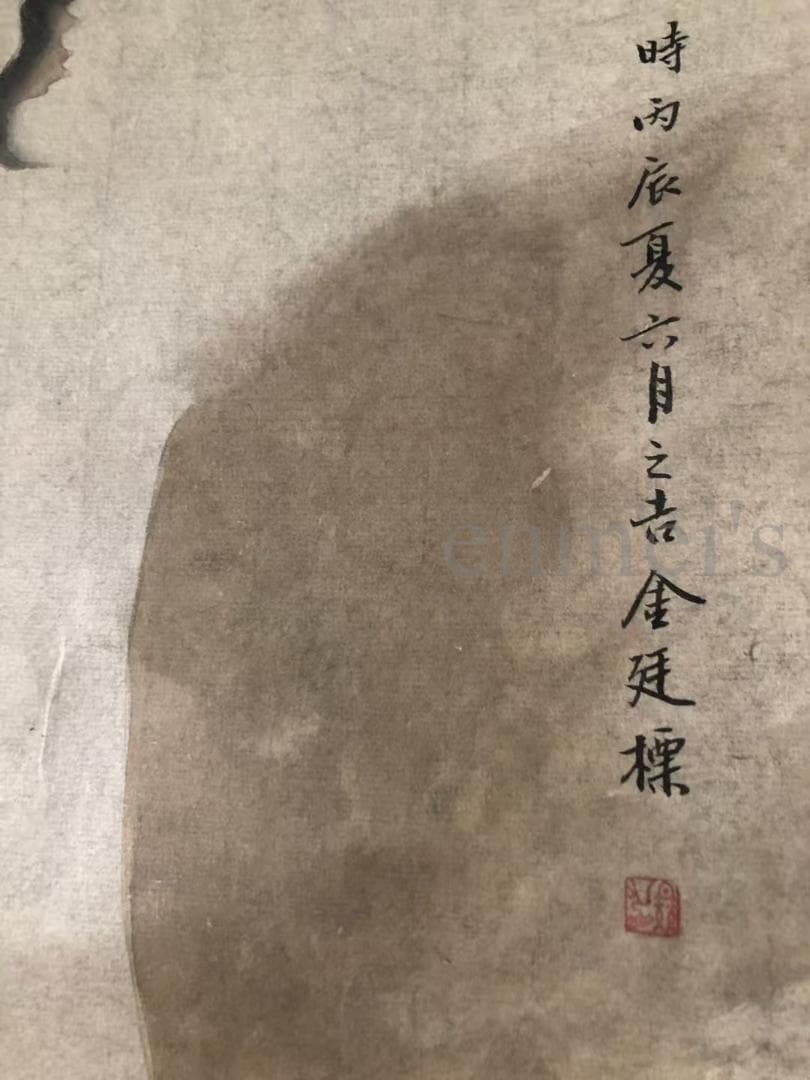 時丙辰夏六月之吉金廷標
enmei's